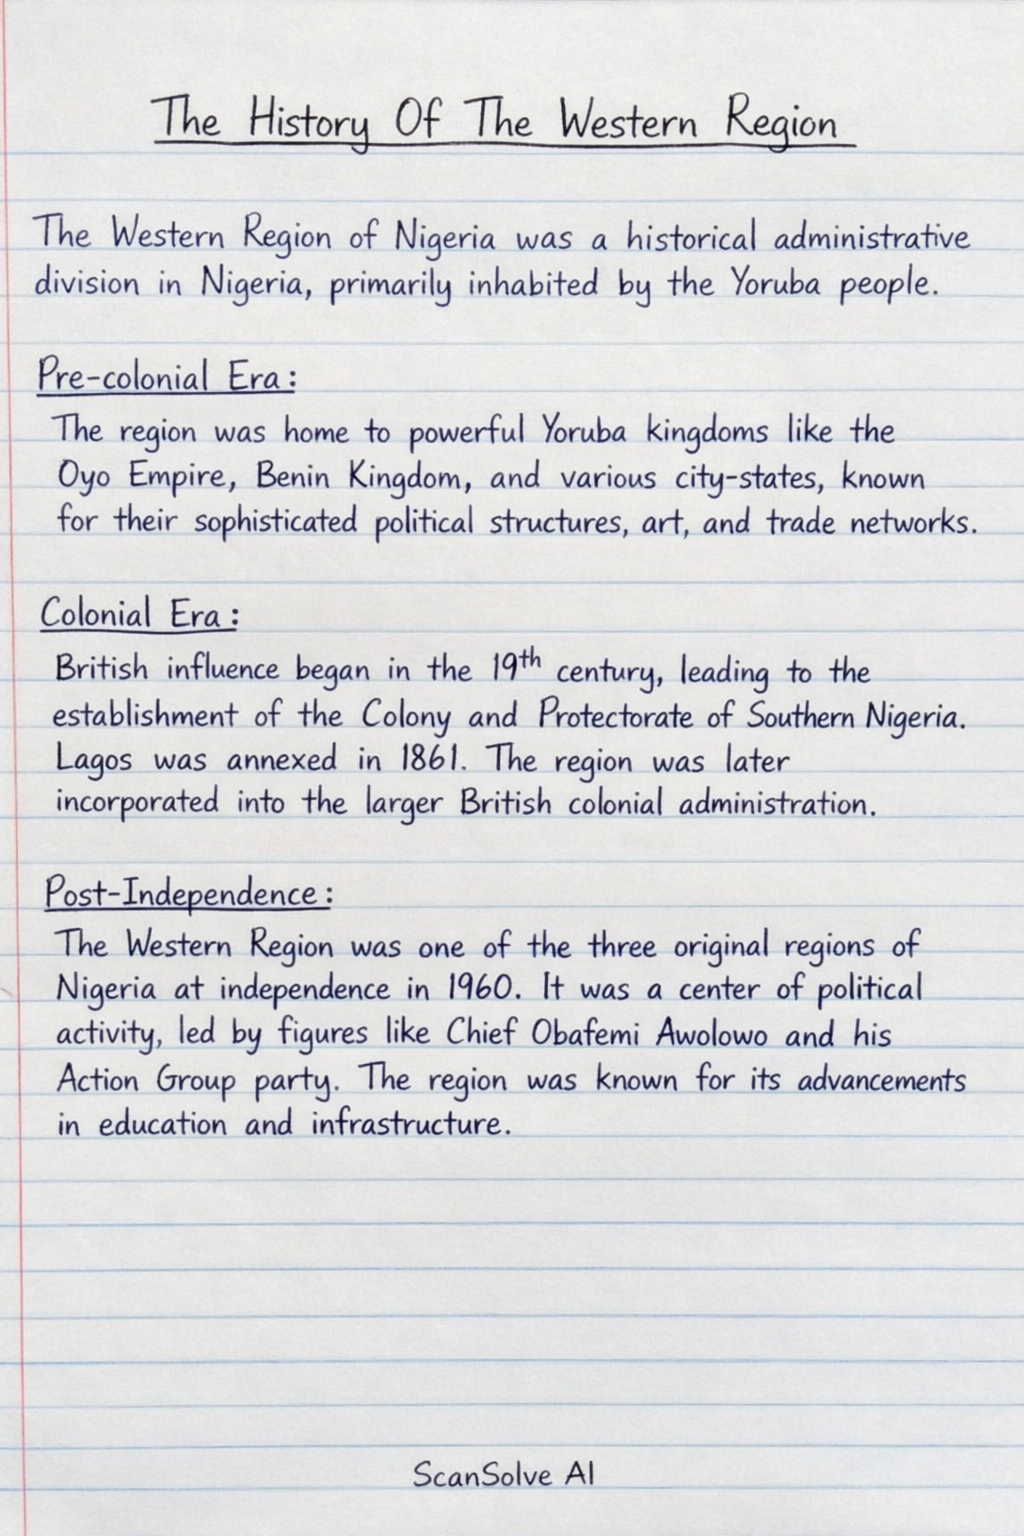 The History Of The Western Region
The Western Region of Nigeria was a historical administrative
division in Nigeria, primarily inhabited by the Yoruba people.
Pre-colonial Era:
The region was home to powerful Yoruba kingdoms like the
Oyo Empire, Benin Kingdom, and various city-states, known
for their sophisticated political structures, art, and trade networks.
Colonial Era:
British influence began in the 19th century, leading to the
establishment of the Colony and Protectorate of Southern Nigeria.
Lagos was annexed in 1861. The region was later
incorporated into the larger British colonial administration.
Post-Independence:
The Western Region was one of the three original regions of
Nigeria at independence in 1960. It was a center of political
activity, led by figures like Chief Obafemi Awolowo and his
Action Group party. The region was known for its advancements
in education and infrastructure.
ScanSolve AI